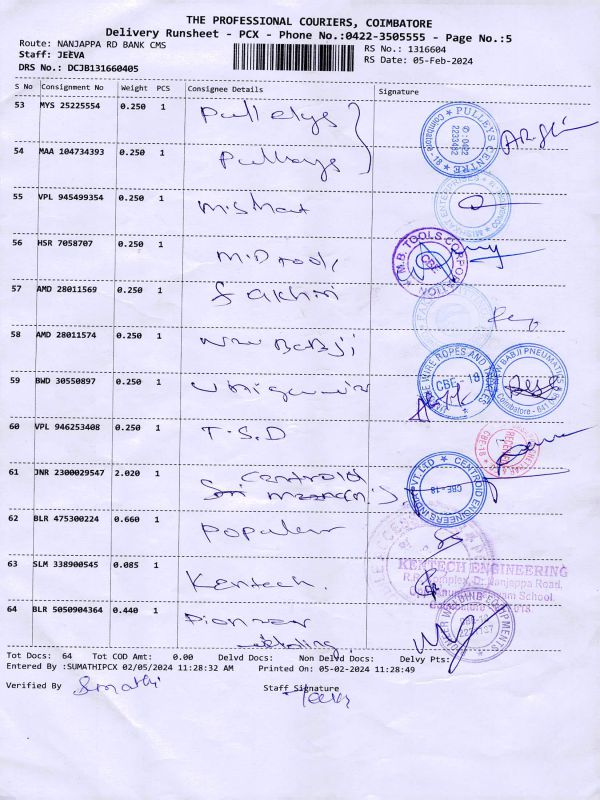 THE PROFESSIONAL COURIERS, COIMBATORE
Delivery Runsheet - PCX - Phone No.:0422-3505555 - Page No.:5
Route: NANJAPPA RD BANK CMS
RS No.: 1316604
Staff: JEEVA
RS Date: 05-Feb-2024
DRS No.: DCJB131660405
S No Consignment No Weight PCS Consignee Details Signature
53 MYS 25225554 0.250 1 Pulleys
PULLEYS CENTRE
Coimbatore-18
54 MAA 104734393 0.250 1 Pulleys
55 VPL 945499354 0.250 1 Mishat
56 HSR 7058707 0.250 1 M.D Tools
M.B. TOOLS CORPORATION
CBE
57 AMD 28011569 0.250 1 Fakhri
58 AMD 28011574 0.250 1 New Babji
NEW BABJI PNEUMATICS
Coimbatore - 641
59 BWD 30550897 0.250 1
WIRE ROPES AND
CBE - 18
60 VPL 946253408 0.250 1 T.S.D
RECEIVED
CBE-18
61 JNR 2300029547 2.020 1 Centroid
CENTROID ENGINEERS INDIA PVT LTD
CBE-18
62 BLR 475300224 0.660 1 Popular
63 SLM 338900545 0.085 1 Kentech.
KENTECH ENGINEERING
Nanjappa Road,
School.
64 BLR 5050904364 0.440 1 Pioneer
Tot Docs: 64 Tot COD Amt: 0.00 Delvd Docs: Non Delvd Docs: Delvy Pts:
Entered By :SUMATHIPCX 02/05/2024 11:28:32 AM Printed On: 05-02-2024 11:28:49
Verified By Sumathi
Staff Signature